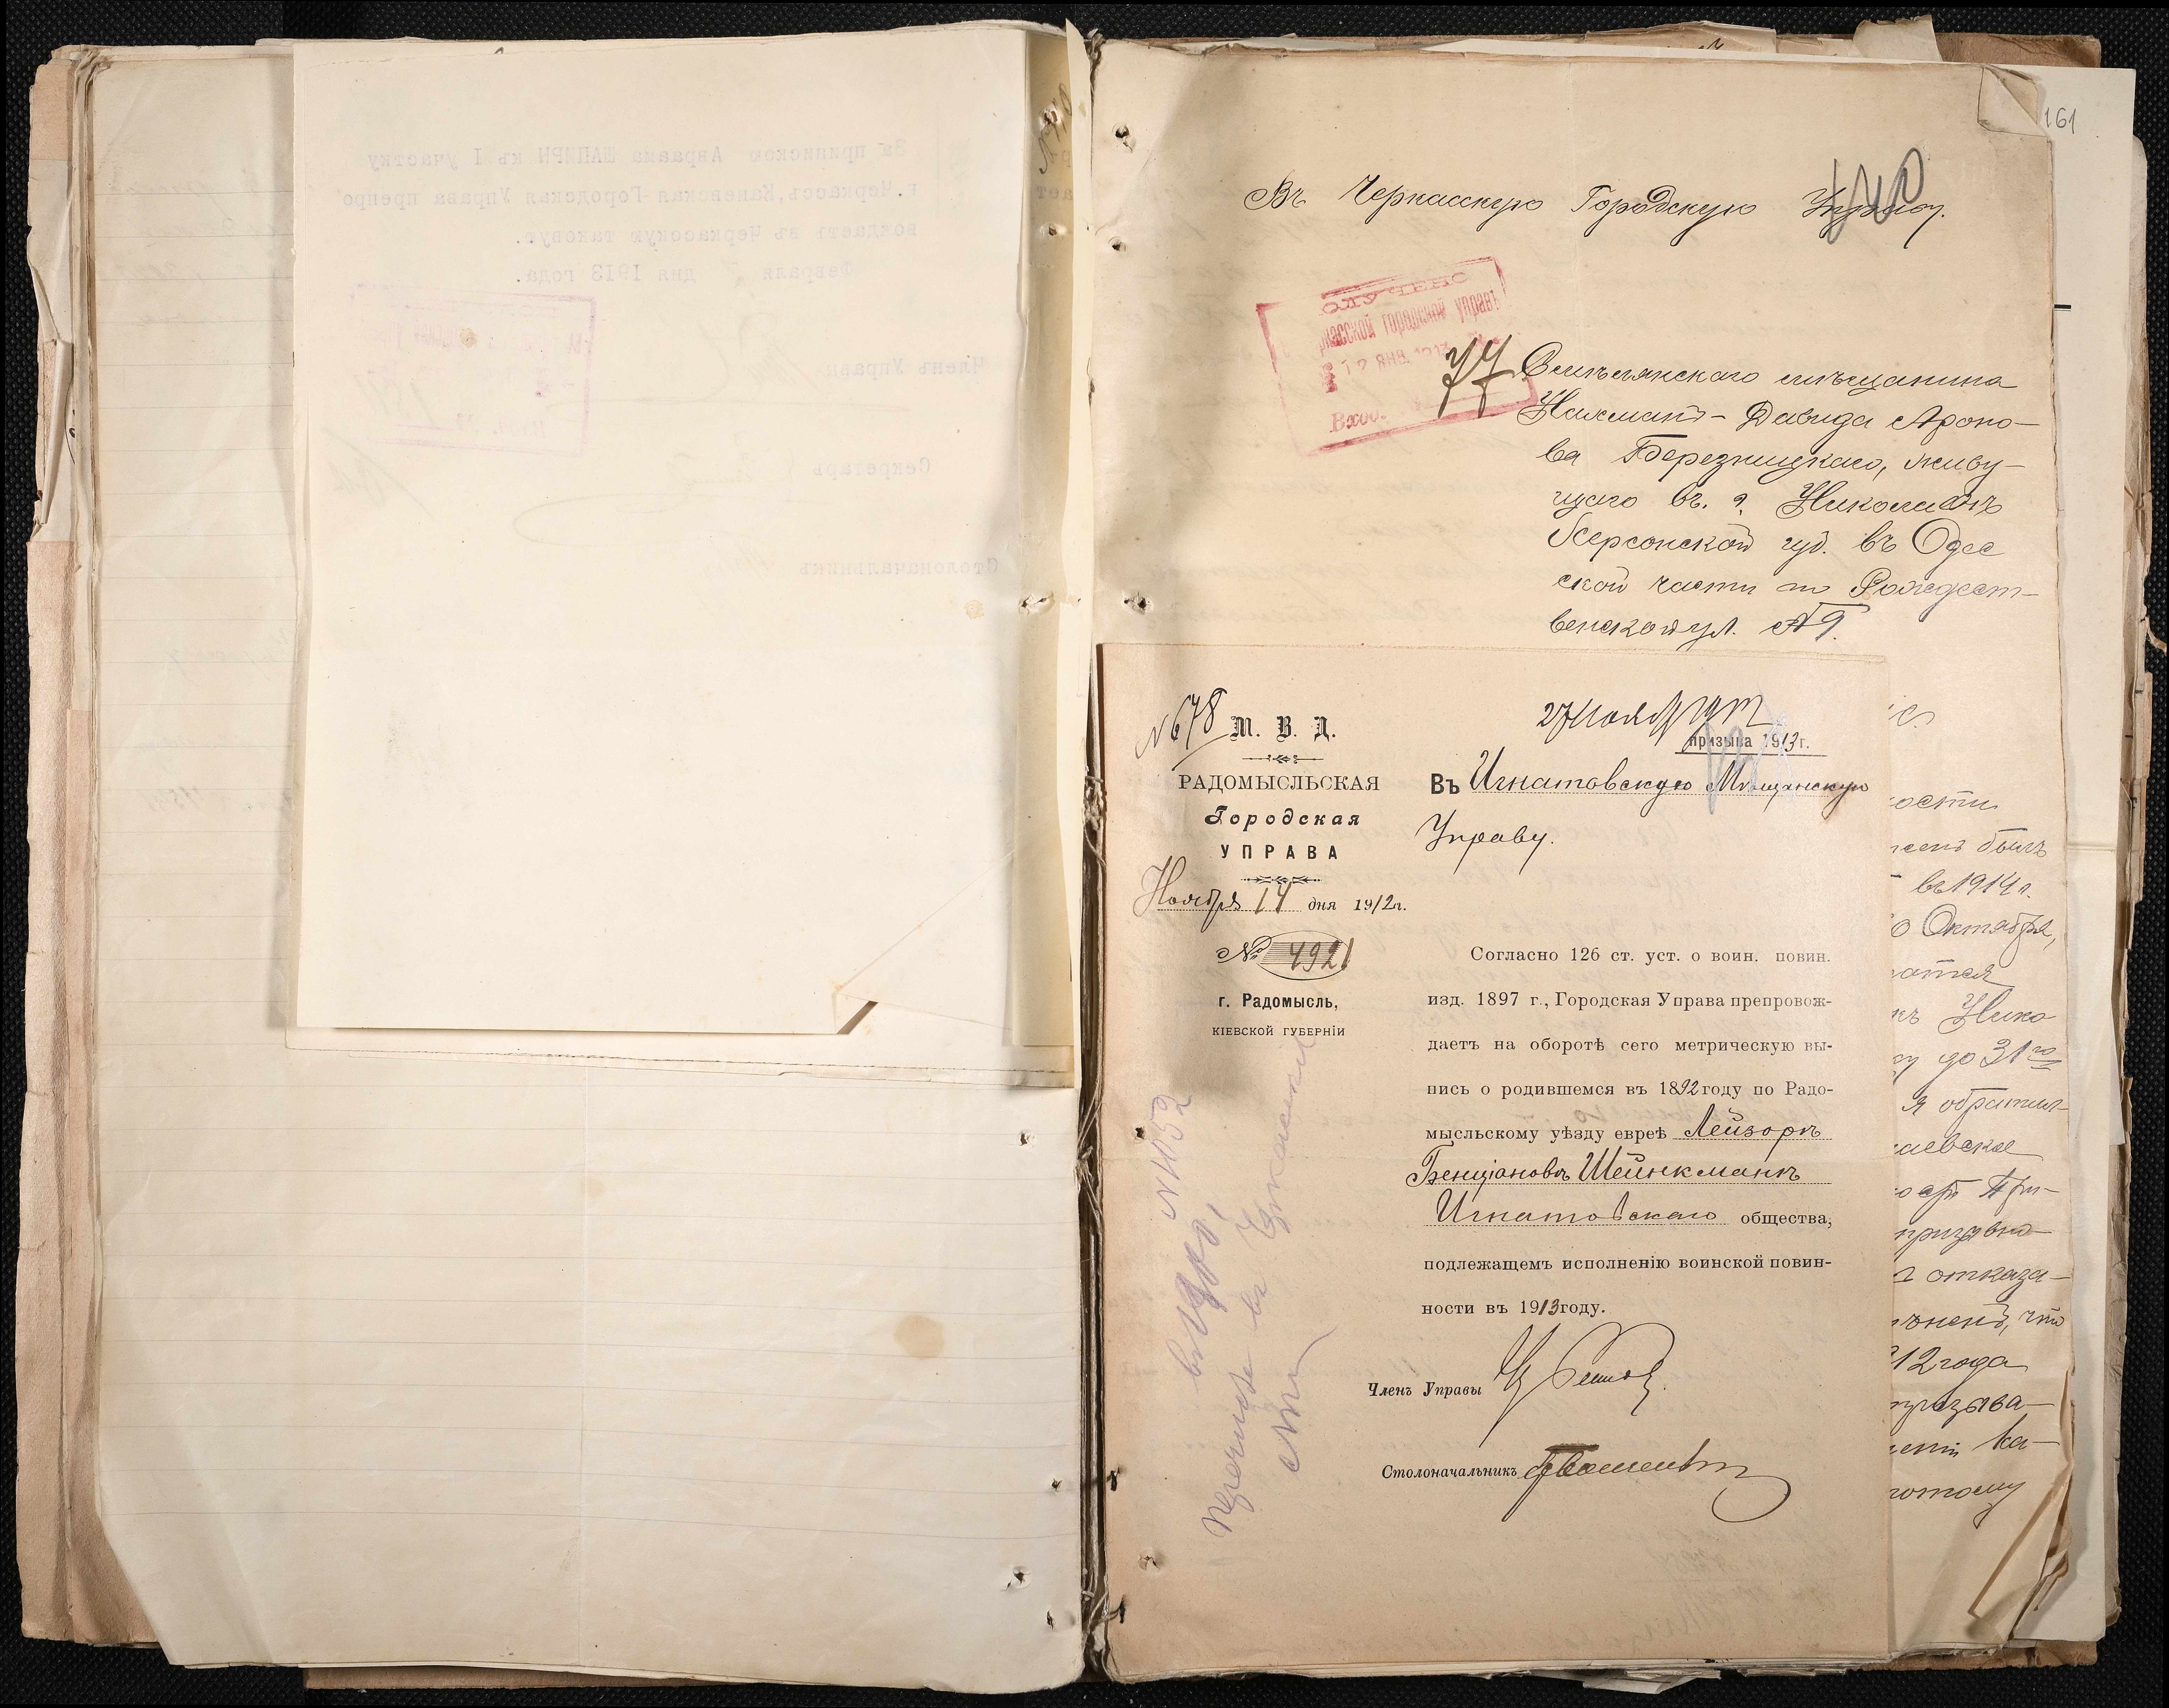 За припискою Авраама ШАПИРЫ къ I участку
г. Черкассъ, Каневская Городская Управа препро
вождаетъ въ Черкасскую таковую.
Февраля дня 1913 года.
Членъ Управы
Секретарь
Столоначальникъ
161
Въ Черкасскую Городскую Управу.
140
ПОЛУЧЕНО
Черкасской Городской Управѣ
12 ЯНВ 1913
Вход.
77
Смѣлянскаго мѣщанина
Нахманъ-Давида Ароно-
ва Березницкаго, живу-
щаго въ г. Николаевѣ
Херсонской губ. въ Одес
ской части по Рождест-
венской ул. №9.
№678
М. В. Д.
РАДОМЫСЛЬСКАЯ
Городская
УПРАВА
Ноября 14 дня 1912г.
№ 4921
г. Радомысль,
КІЕВСКОЙ ГУБЕРНІИ
27 ноября 1912
призыва 1913г.
Въ Игнатовскую Мѣщанскую
Управу.
Согласно 126 ст. уст. о воин. повин.
изд. 1897 г., Городская Управа препровож-
даетъ на оборотѣ сего метрическую вы-
пись о родившемся въ 1892 году по Радо-
мысльскому уѣзду евреѣ Лейзоръ
Бенціановъ Шейнкманъ
Игнатовскаго общества,
подлежащемъ исполненію воинской повин-
ности въ 1913 году.
Членъ Управы
Столоначальникъ
№1152
въ
ости
женъ былъ
въ 1914 г.
Октября,
Нико
до 31го
я обратил-
аевское
При-
призывно
отказа-
что
12 года
призыва-
ка-
потому